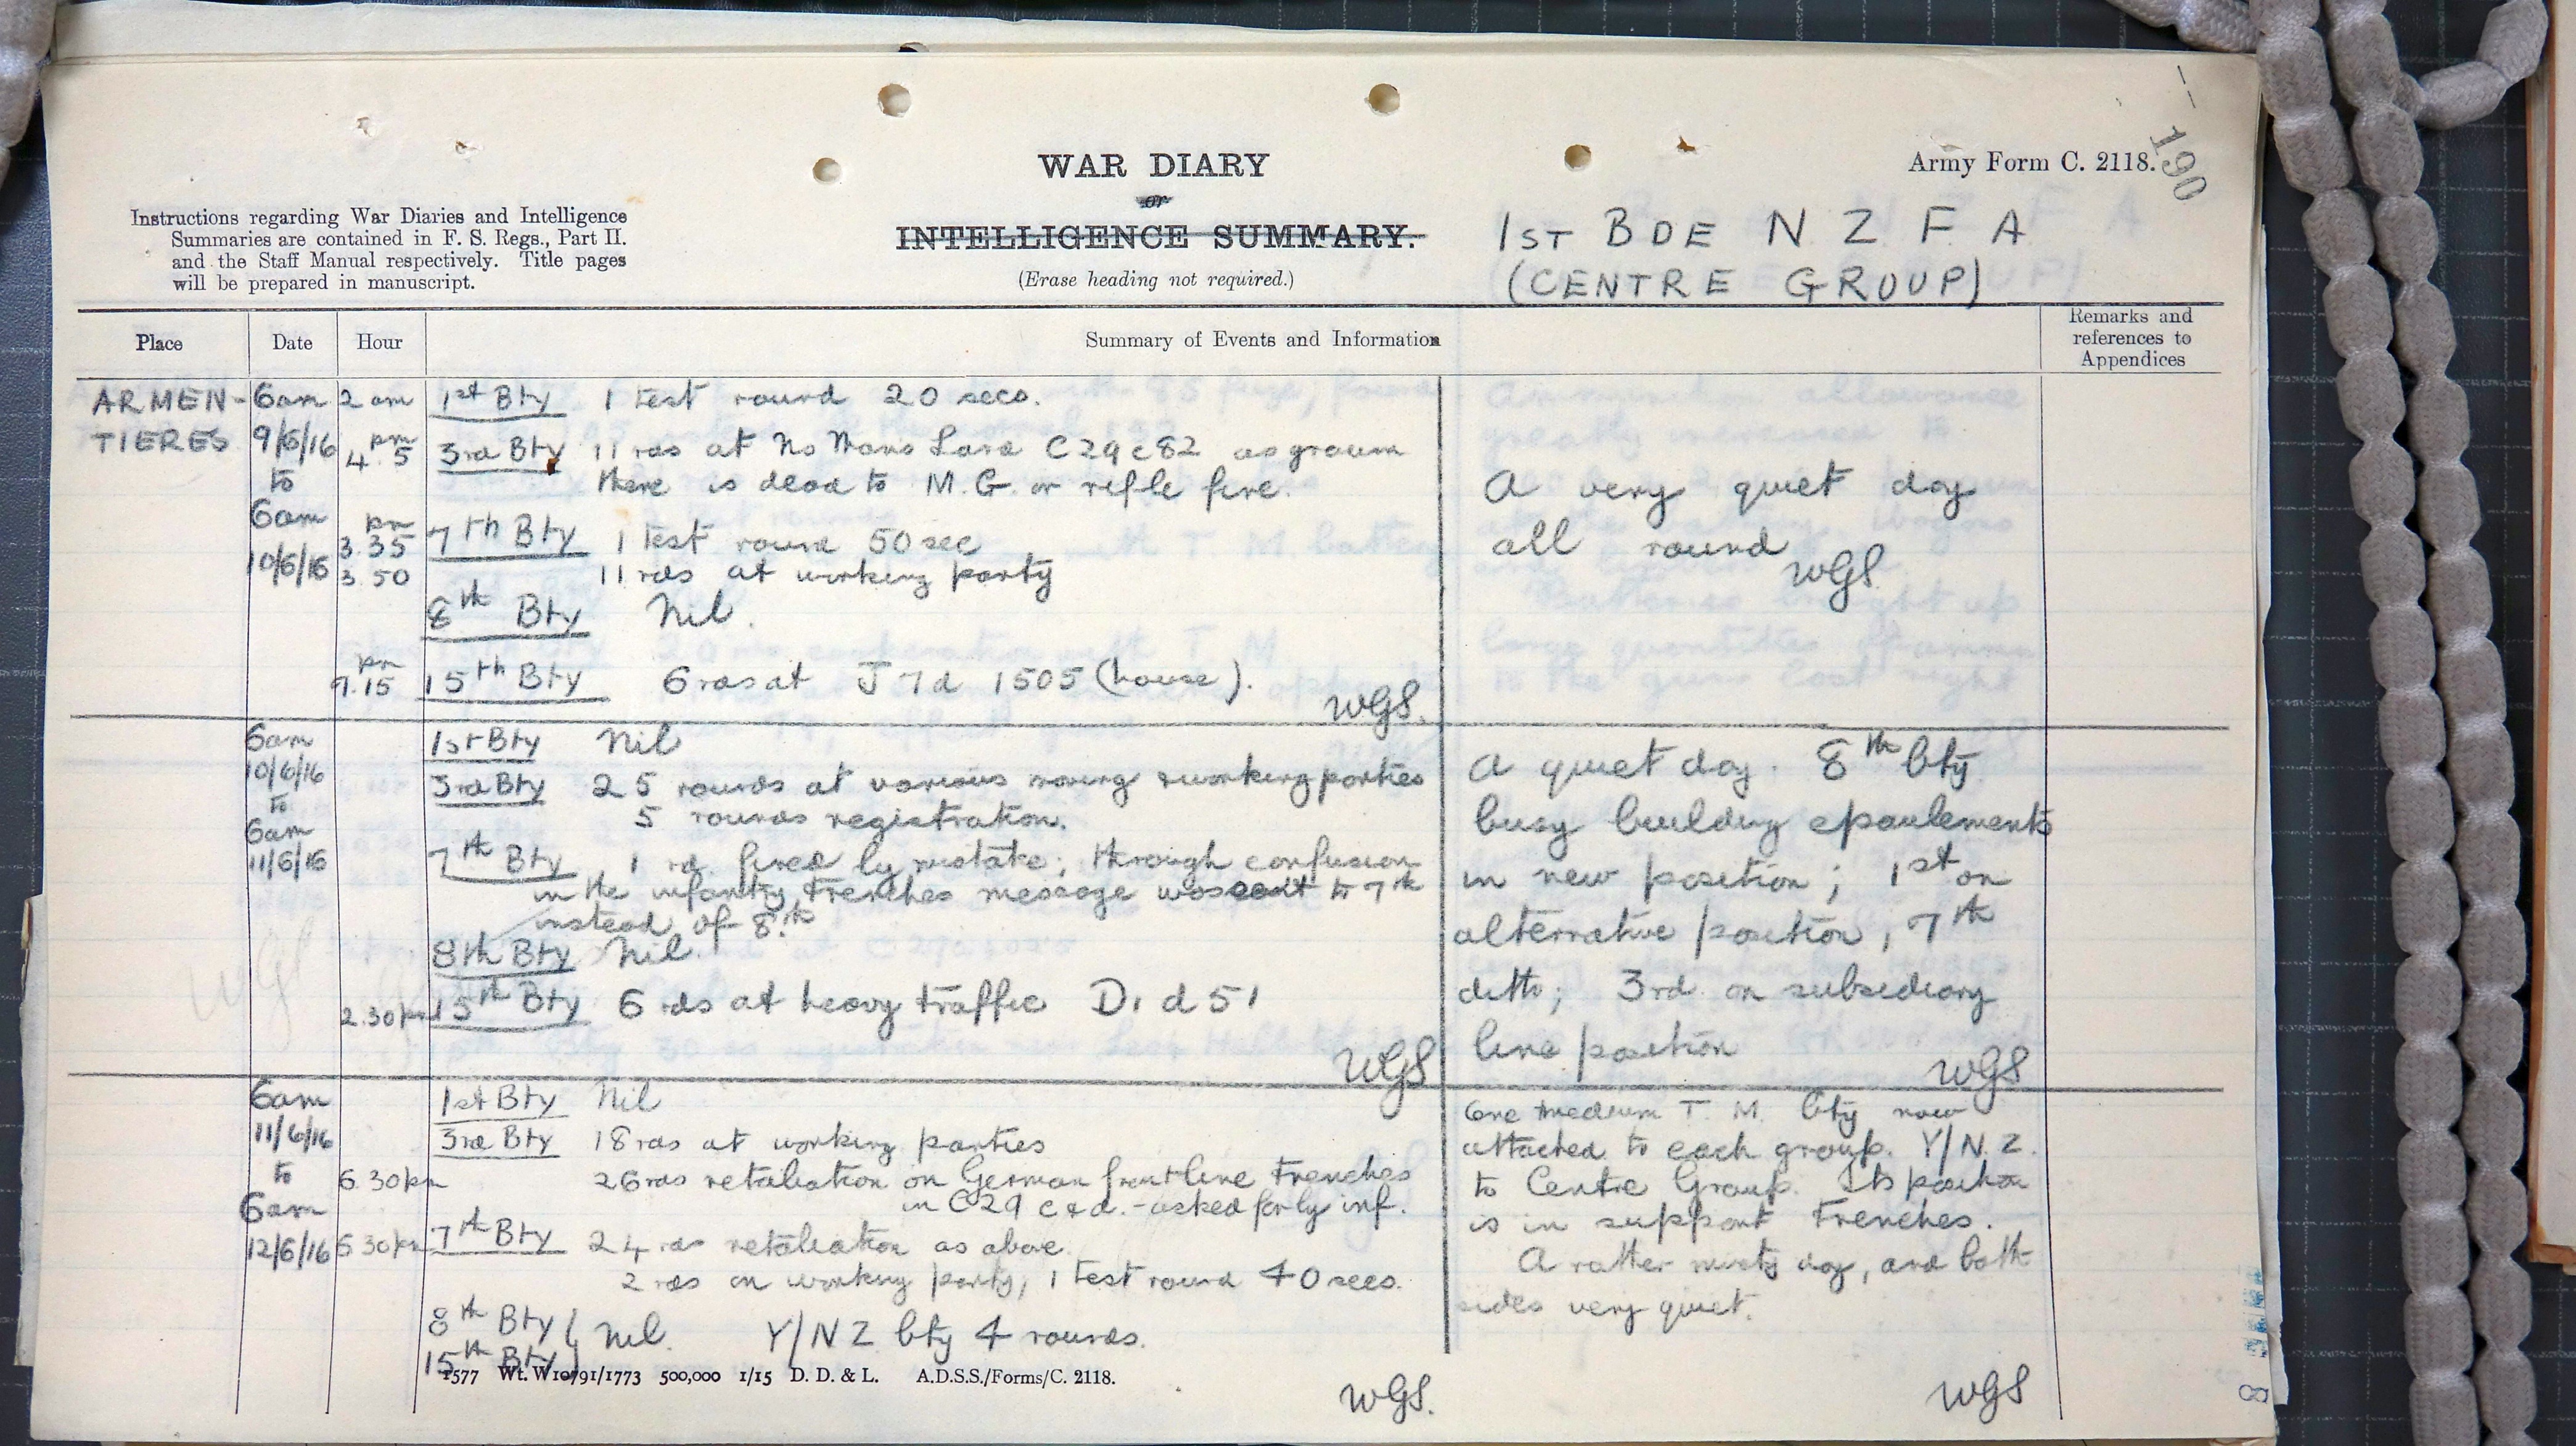 190
Army Form C. 2118.
WAR DIARY
or
INTELLIGENCE SUMMARY.
(Erase heading not required.)
Instructions regarding War Diaries and Intelligence
Summaries are contained in F. S. Regs., Part II.
and the Staff Manual respectively. Title pages
will be prepared in manuscript.
1ST BDE N Z F A
(CENTRE GROUP)
Place Date Hour Summary of Events and Information Remarks and references to Appendices
ARMEN- 6am 2 am 1st Bty 1 test round 20 secs.
TIERES 9/6/16 pm 4.5 3rd Bty 11 rds at No Mans Land C29c82 as ground
to there is dead to M.G. or rifle fire.
6am pm 3.35 7th Bty 1 test round 50 sec
10/6/16 3.50 11 rds at working party
8th Bty Nil.
pm 7.15 15th Bty 6 rds at J7d 1505 (house).
WGS.
A very quiet day
all round
WGS
6am 1st Bty Nil
10/6/16 3rd Bty 25 rounds at various moving & working parties
to 5 rounds registration.
6am
11/6/16 7th Bty 1 rd. fired by mistake; through confusion
in the infantry trenches message was sent to 7th
instead of 8th
8th Bty Nil.
2.30pm 15th Bty 6 rds at heavy traffic D1d51
WGS
A quiet day. 8th bty
busy building epaulements
in new position; 1st on
alternative position, 7th
ditto; 3rd on subsidiary
line position
WGS
WGS
6am 1st Bty Nil
11/6/16 3rd Bty 18 rds at working parties
to 6.30pm 26 rds retaliation on German front line trenches
6am in C29 c&d.-asked for by inf.
12/6/16 6 30pm 7th Bty 24 rds retaliation as above.
2 rds on working party, 1 test round 40 secs.
8th Bty
15th Bty } Nil. Y/NZ bty 4 rounds.
WGS.
One medium T. M. bty now
attached to each group. Y/N.Z.
to Centre Group. Its position
is in support trenches.
A rather misty day, and both
sides very quiet.
WGS
1577 Wt. W10791/1773 500,000 1/15 D. D. & L. A.D.S.S./Forms/C. 2118.
8